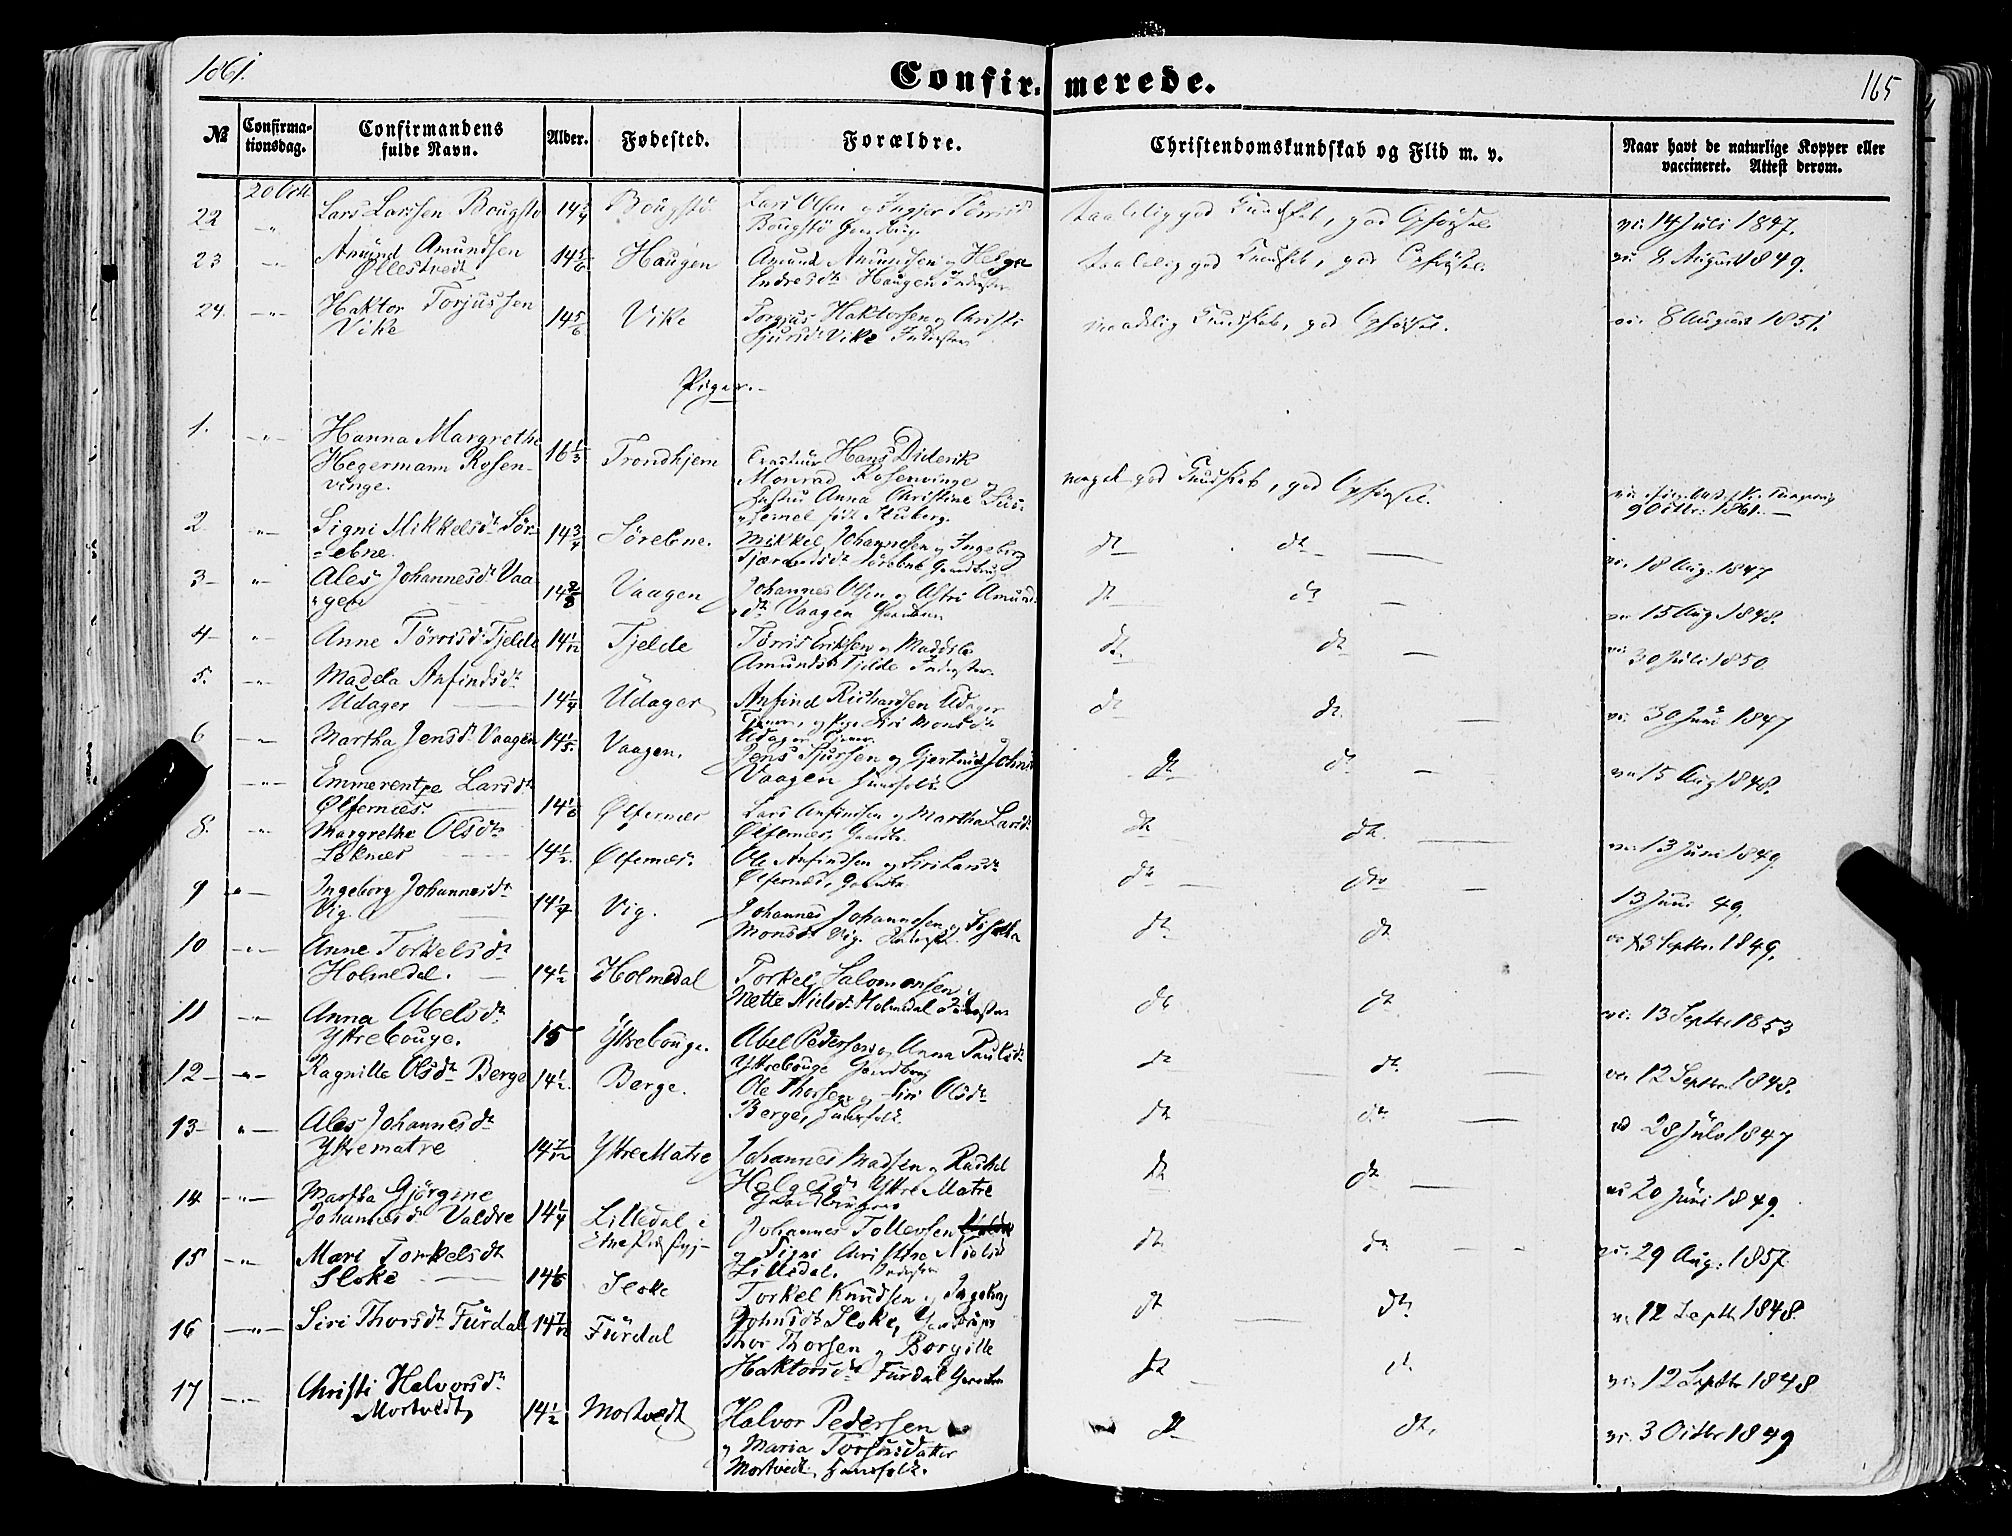 1861.
Confirmerede.
165
№
Confirma-
tionsdag.
Confirmandens
fulde Navn.
Alder.
Fødested.
Forældre.
Christendomskundskab og Flid m. v.
Naar havt de naturlige Kopper eller
vaccineret. Attest derom.
20 Octr
22 Lars Larssen Bougstø 14 3/4 Bougstø
Lars Olsen og Ingjer
Bougstø
god Kundskab, god Opførsel
14 Juli 1847.
23 Amund Amundsen
Øllestvedt 14 5/6 Haugen
Amund Amundsen og Helga
Endresdtr Haugen Inderster
god Kundskab, god Opførsel.
8 August 1849.
24. Haktor Torjussen
Vike 14 5/6 Vike
Torjus Haktorsen og Christi
Sjursdr Vike Inderster
maadelig Kundskab, god Opførsel.
8 August 1851.
Piger.
1. Hanna Margrethe
Hegermann Rosen-
vinge. 16 1/3 Trondhjem
Hans Diderik
Monrad Rosenvinge og
Hustru Anna Christine
født Stuberg.
meget god Kundskab, god Opførsel.
9 Octbr. 1861.
2 Signi Mikkelsdr Sør-
ebne. 14 3/4 Sørebne.
Mikkel Johannesen og Ingeborg
Sørebne
dt dt
18 Aug: 1847
3 Ales Johannesdr Vaa-
gen 14 Vaagen
Johannes Olsen og Astri Amunds-
dr Vaagen
dt dt
15 Aug 1848.
4 Anne Tørrisdr Tjelde 14 1/12 Tjelde
Tørris Eriksen og Maddele
Amundsdr Tjelde Inderster
dt dt
30 Juli 1850
5. Madela Anfindsdr
Udager 14 1/4 Udager
Anfind Richardsen Udager
og Pige Siri Monsdr
Udager
dt dt
30 Juni 1847
6 Martha Jensdr Vaagen 14 1/5 Vaagen.
Jens Sjursen og Gjertrud Johnsd
Vaagen Huusfolk
dt dt
15 Aug 1848.
Emmerentze Larsdr
Ølfernæs. 14 1/6 Ølfernæs
Lars Anfindsen og Martha Larsdr
Ølfernæs,
dt dt
13 Juni 1849
8. Margrethe Olsdr
Løknes 14 1/2 Ølfernæs.
Ole Anfindsen og Siri Larsdr
Ølfernæs,
dt dt
13 Juni 49.
9 Ingeborg Johannesdr
Vig. 14 Vig.
Johannes Johannesen og
Monsdr Vig.
dt dt
13 Septbr. 1849.
10 Anne Torkelsdr
Holmedal. 14 1/2 Holmedal
Torkel Salomonsen og
Mette Nielsdr Holmedal Inderster
dt dt
13 Septbr 1853
11 Anna Abelsdr
Yttrebouge. 15 Yttrebouge.
Abel Pedersen og Anna Paulsdr
Yttrebouge
dt dt
12 Septbr. 1848.
12 Ragnille Olsdr Berge 14 1/2 Berge.
Ole Thorsen og Siri Olsdr
Berge, Huusfolk.
dt dt
28 Juli 1847
13 Ales Johannesdr
Yttrematre 14 7/12 Yttre Matre
Johannes Madsen og Rachel
Helgesdr Yttre Matre
dt dt
20 Juni 1849.
14 Martha Gjørgine
Johannesdr Valdre 14 1/4 Lilledal i
Etne
Johannes Tollefsen
og Signi Christine Nielsd
Lilledal.
dt dt
29 Aug: 1857
15 Mari Torkelsdr
Sloke 14 Sloke
Torkel Knudsen og Ingeborg
Johnsdr Sloke,
dt dt
12 Septbr 1848.
16 Siri Thorsdr Furdal 14 7/12 Furdal
Thor Thorsen og Borgille
Haktorsdr Furdal
dt dt
12 Septbr 1848
17 Christi Halvorsdr
Mortvedt, 14 1/2 Mortvedt
Halvor Pedersen
og Maria Torsensdatter
Mortvedt, Huusfolk.
dt dt.
3 Octbr 1849